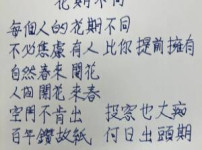 花期不同
每個人的花期不同
不必焦慮有人比你提前擁有
自然春來開花
人間開花來春
空門不肯出 投窗也太痴
百年鑽故紙 何日出頭期